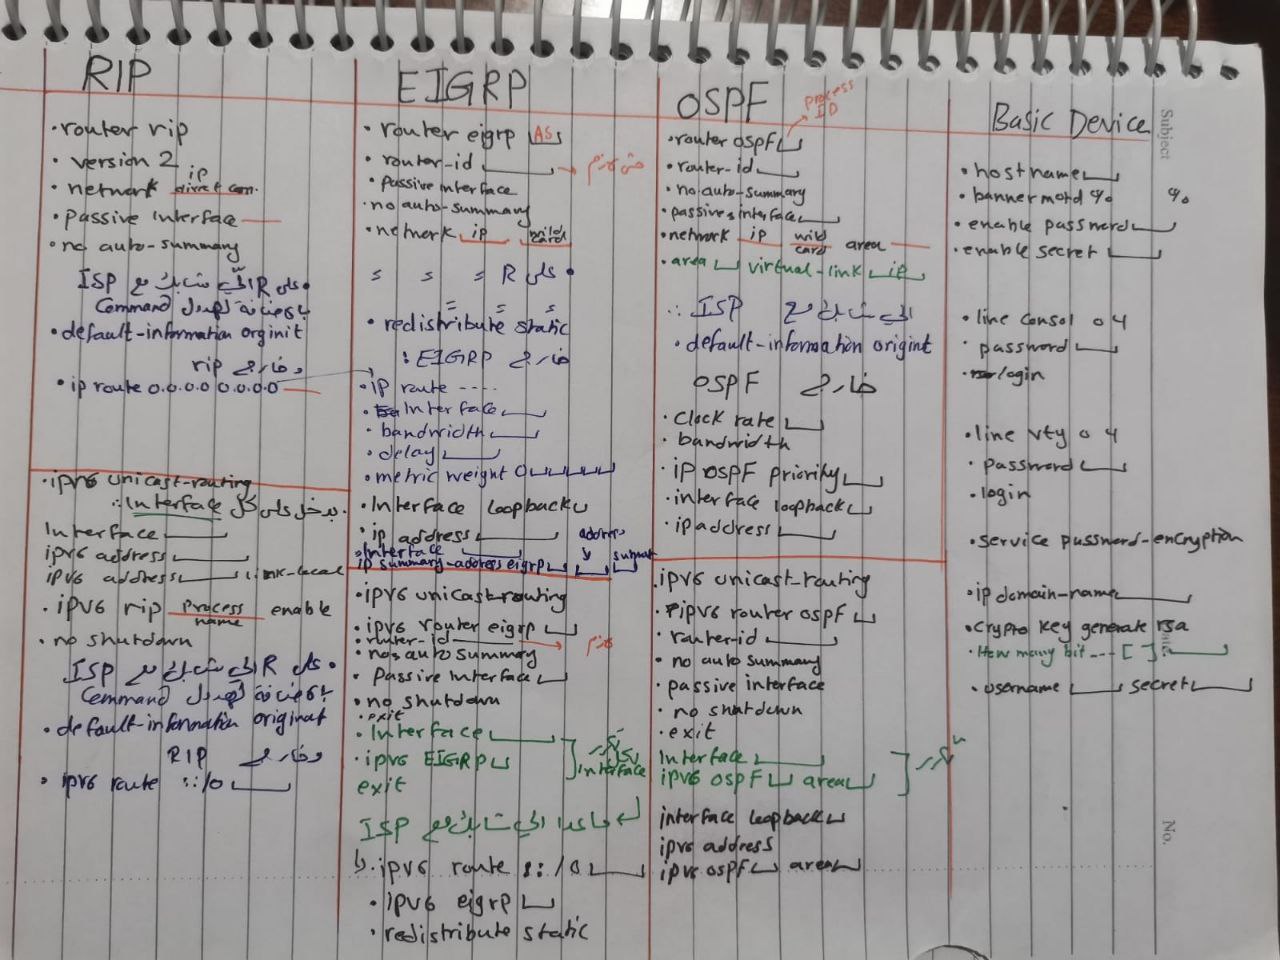 RIP
· router rip
· version 2
ip
· network direct con.
· passive Interface
· no auto-summary
· على R الي شابك مع ISP
Command
· default-information orginit
rip خارج
· ip route 0.0.0.0 0.0.0.0
· ipv6 unicast-routing
· بدخل على كل Interface :
Interface
ipv6 address
ipv6 address link-local
· ipv6 rip process name enable
· no shutdown
· على R الي شابك مع ISP
Command
· default-information originat
وخارج RIP
· ipv6 route ::/0
EIGRP
· router eigrp AS
· router-id → مش لازم
· passive interface
· no auto-summary
· network ip wild card
· على R = = =
= = =
· redistribute static
خارج EIGRP :
· ip route ----
· Interface
· bandwidth
· delay
· metric weight 0
· Interface loopback
· ip address
· Interface
address
ip summary-address eigrp subnet
· ipv6 unicast-routing
· ipv6 router eigrp
· router-id → لازم
· no auto summary
· Passive Interface
· no shutdown
· exit
· Interface
· ipv6 EIGRP
interface
exit
ما عدا الي شابك مع ISP
· ipv6 route ::/0
· ipv6 eigrp
· redistribute static
OSPF
process ID
· router ospf
· router-id
· no auto-summary
· passive interface
· network ip wild card area
· area virtual-link ip
الي شابك مع ISP :
· default-information origint
خارج OSPF
· Clock rate
· bandwidth
· ip OSPF priority
· interface loopback
· ip address
· ipv6 unicast-routing
· ipv6 router ospf
· router-id
· no auto summary
· passive interface
· no shutdown
· exit
Interface
ipv6 OSPF area
interface loopback
ipv6 address
ipv6 ospf area
Basic Device
· hostname
· banner motd % %
· enable password
· enable secret
· line consol 0 4
· password
· login
· line vty 0 4
· password
· login
· service password-encryption
· ip domain-name
· Crypto key generate rsa
· How many bit --- [ ]:
· username secret
Subject
No.